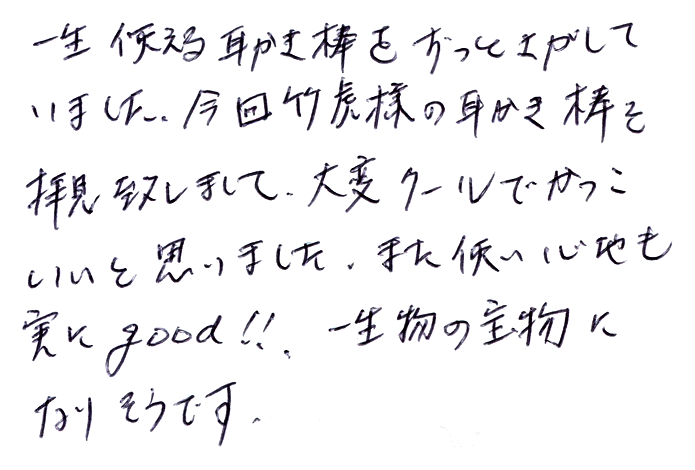 一生使える耳かき棒をずっとさがして
いました。今回竹虎様の耳かき棒を
拝見致しまして、大変クールでかっこ
いいと思いました。また使い心地も
実にgood!!、一生物の宝物に
なりそうです。